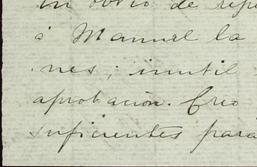 un obvio de repe
á Manuel la
nes; inutil
aprobación. Creo
suficientes para